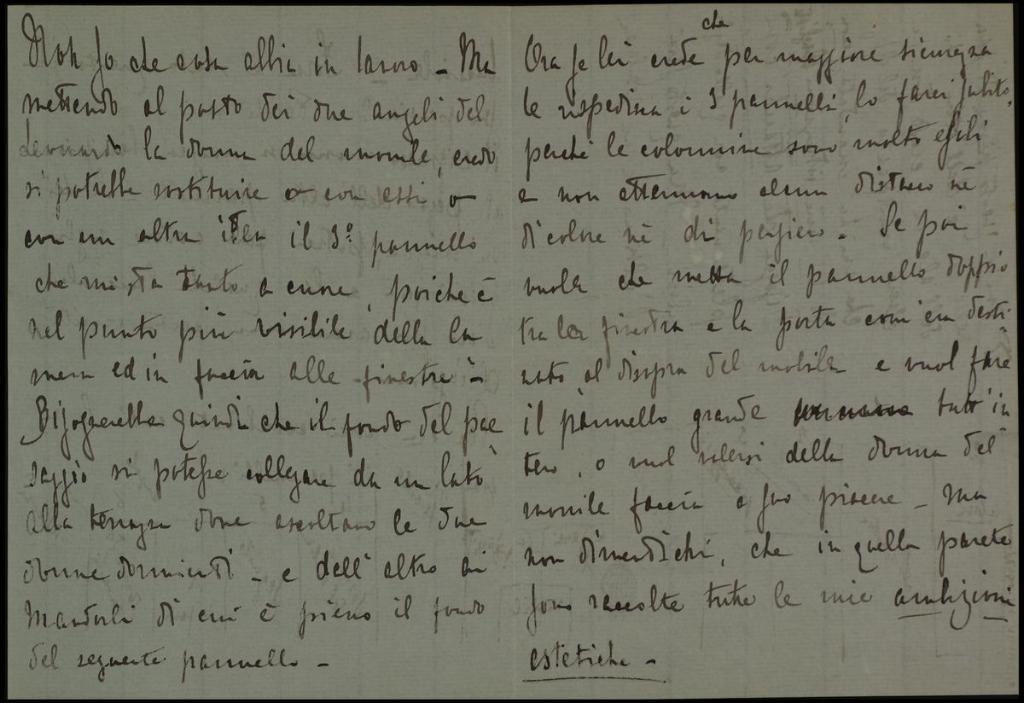 Non so che cosa abbia in lavoro - Ma
mettendo al posto dei due angeli del
la donna del monile, credo
si potrebbe sostituire o con essi o
con un altra idea il 3º pannello
che mi sta tanto a cuore, poiche è
nel punto più visibile della ca
mera ed in faccia alle finestre -
Bisognerebbe quindi che il fondo del pae
saggio si potesse collegare da un lato
alla terrazza dove ascoltano le due
donne dormienti - e dell'altro ai
Mandorli di cui è pieno il fondo
del seguente pannello -
Ora se lei crede che per maggiore sicurezza
le rispedisca i 3 pannelli, lo farei subito,
perché le colonnine sono molto esili
e non ottennono alcun distacco nè
di colore nè di pensiero. Se poi
vuole che metta il pannello doppio
tra la finestra e la porta com'era desti
nato al disopra del mobile e vuol fare
il pannello grande tutt'in
tero, o vuol valersi della donna del
monile faccia a suo piacere - ma
non dimentichi, che in quella parete
sono raccolte tutte le mie ambizioni
estetiche -